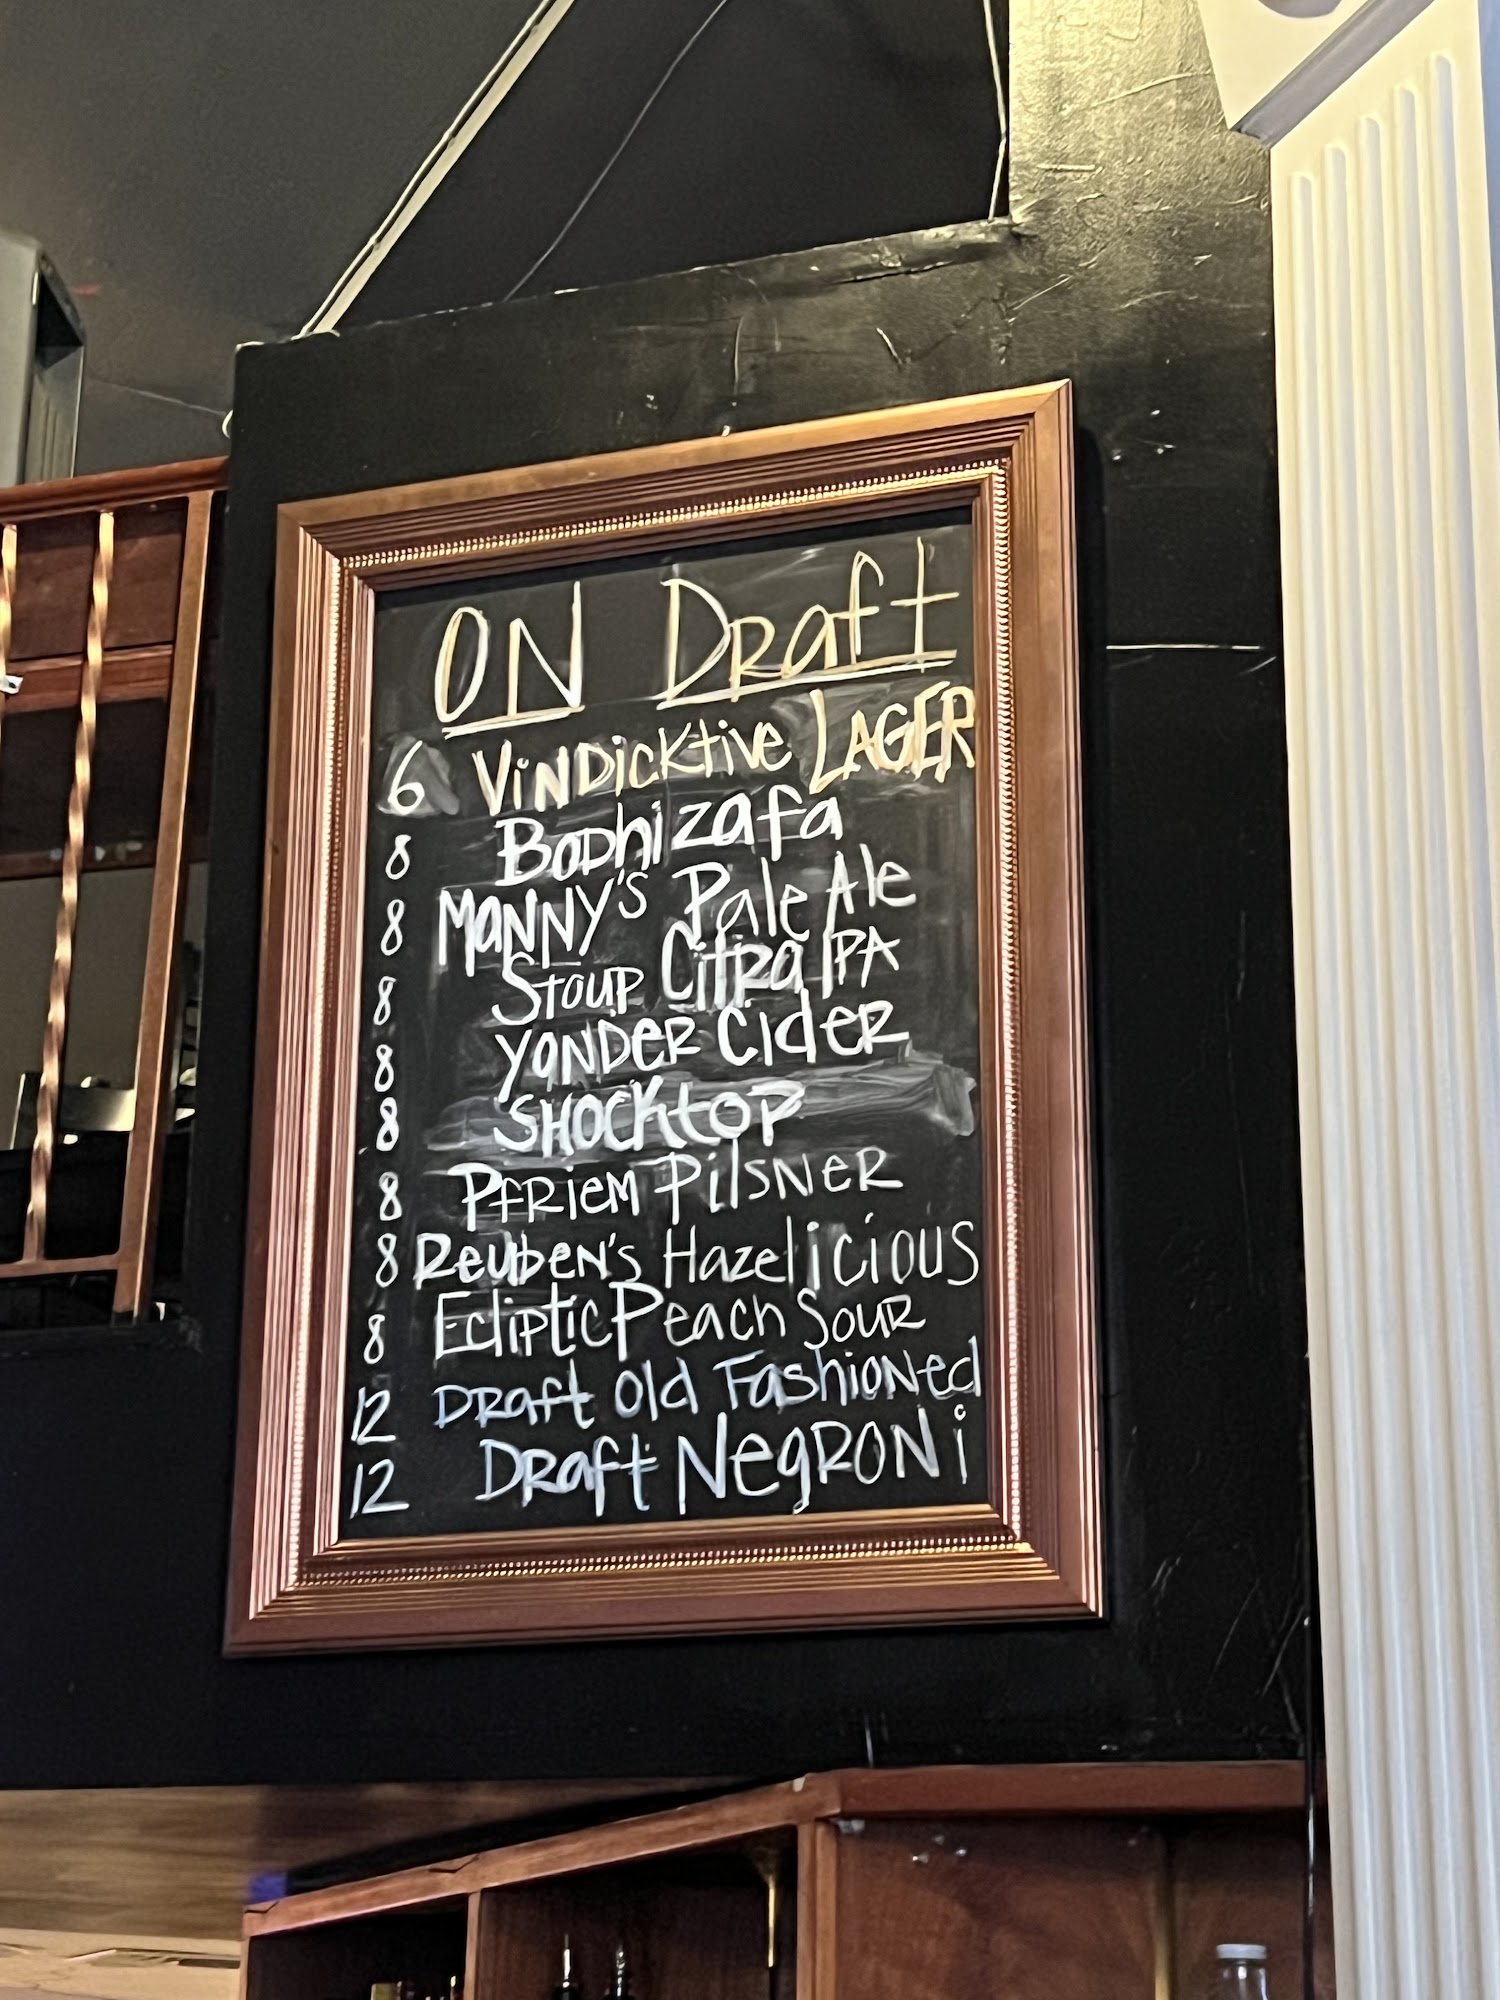 ON Draft
6 VINDicktive LAGER
8 BoDhizafa
8 MaNNy's Pale Ale
8 Stoup Citra IPA
8 YaNDeR CideR
8 SHOCKtoP
8 PfRiem PilsNeR
8 ReubeN's Hazelicious
8 Ecliptic Peach SouR
12 DRaft Old FashioNed
12 DRaft NegRONi